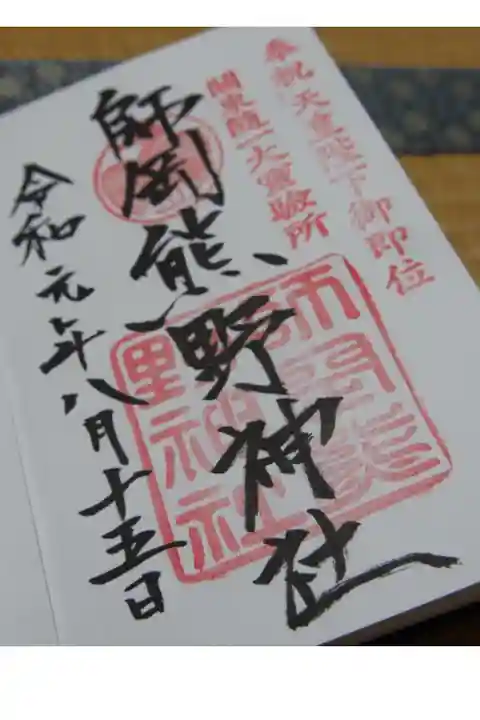 奉祝天皇陛下御即位
関東随一大霊験所
師岡熊野神社
令和元年八月十五日
師岡熊
野神社